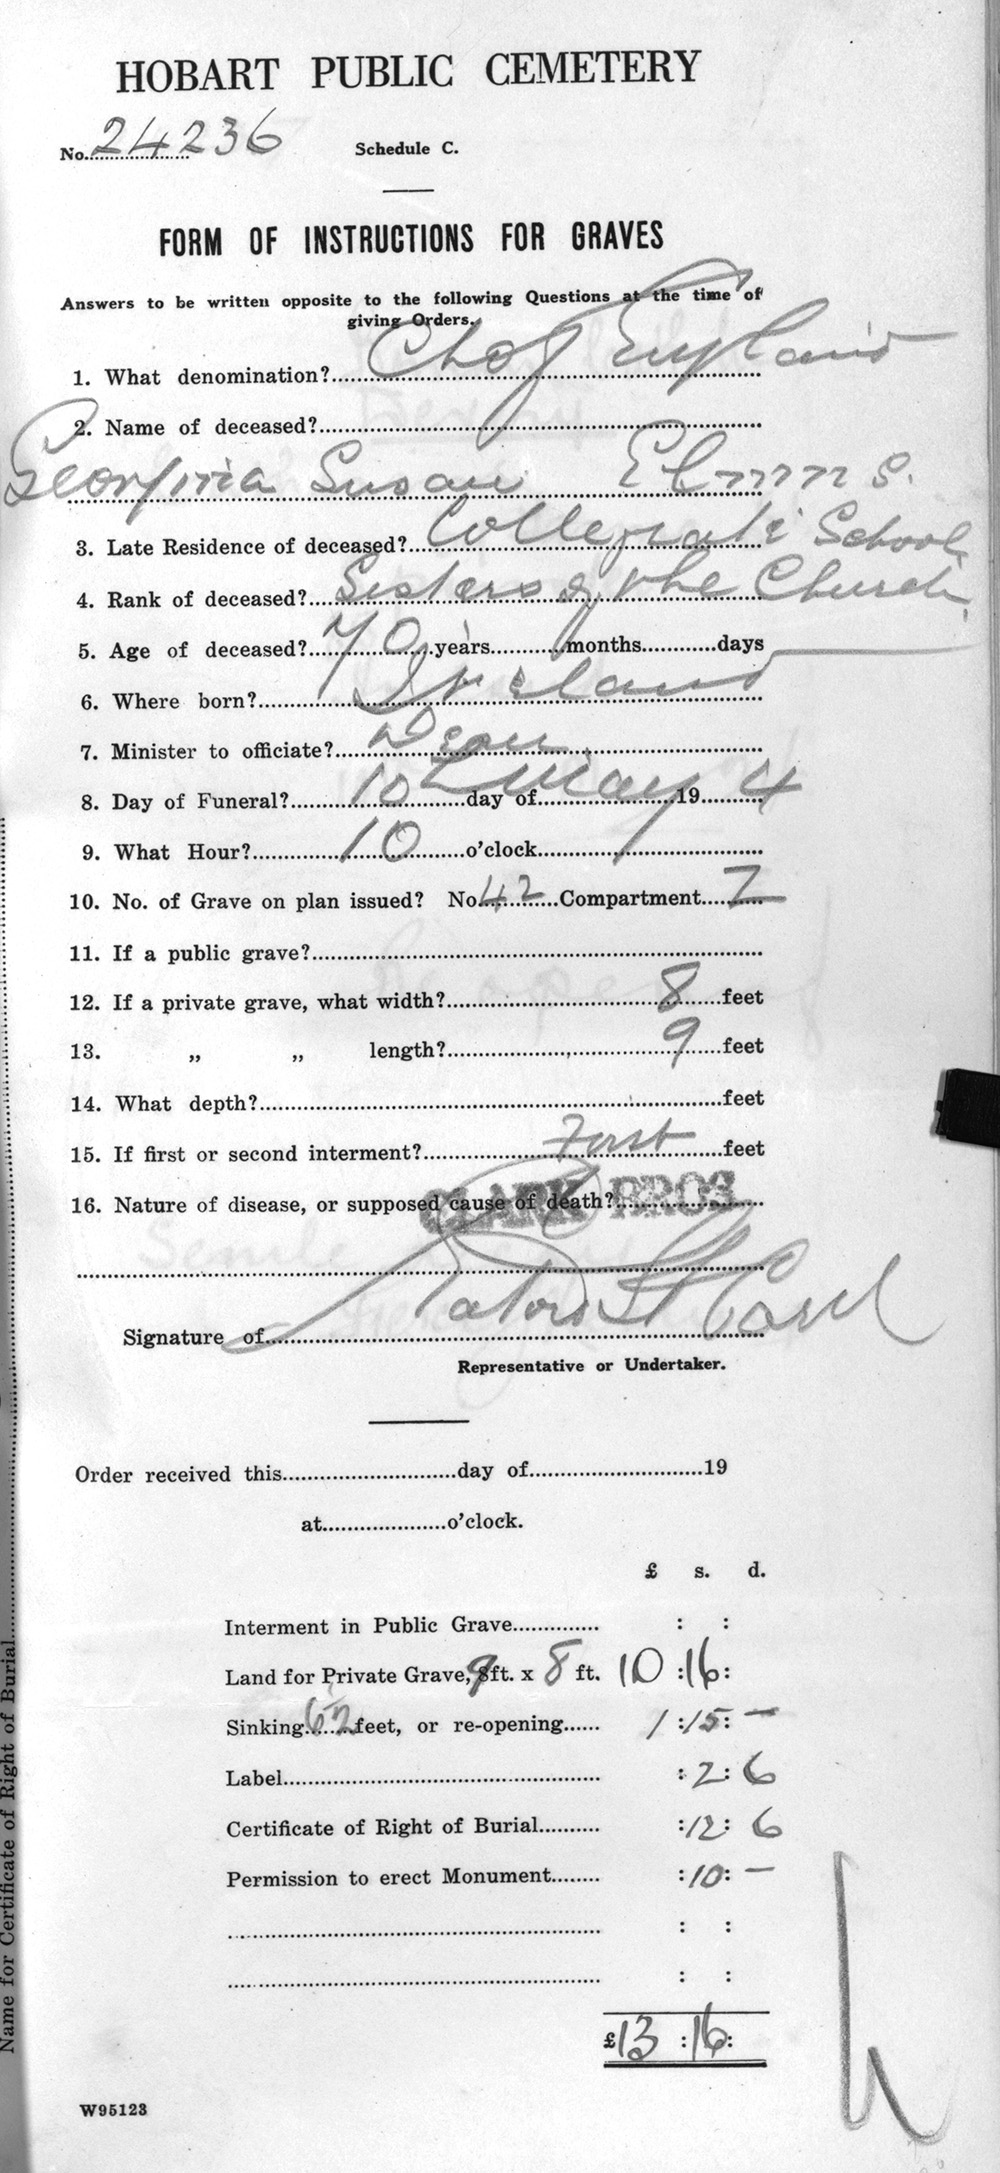 HOBART PUBLIC CEMETERY
No. 24236 Schedule C.
FORM OF INSTRUCTIONS FOR GRAVES
Answers to be written opposite to the following Questions at the time of
giving Orders.
1. What denomination? Ch of England
2. Name of deceased?
Georgina Susan
3. Late Residence of deceased? Collegiate School
4. Rank of deceased? Sisters of the Church
5. Age of deceased? 70 years months days
6. Where born? Ireland
7. Minister to officiate? Dean
8. Day of Funeral? 10 day of May 19 4
9. What Hour? 10 o'clock
10. No. of Grave on plan issued? No. 42 Compartment Z
11. If a public grave?
12. If a private grave, what width? 8 feet
13. „ „ length? 9 feet
14. What depth? feet
15. If first or second interment? First feet
16. Nature of disease, or supposed cause of death? CLARK BROS
Signature of
Representative or Undertaker.
Order received this day of 19
at o'clock.
£ s. d.
Interment in Public Grave : :
Land for Private Grave, 9 ft. x 8 ft. 10 : 16 :
Sinking feet, or re-opening 1 : 15 : —
Label : 2 : 6
Certificate of Right of Burial : 12 : 6
Permission to erect Monument : 10 : —
: :
: :
£ 13 : 16 :
W95123
Name for Certificate of Right of Burial